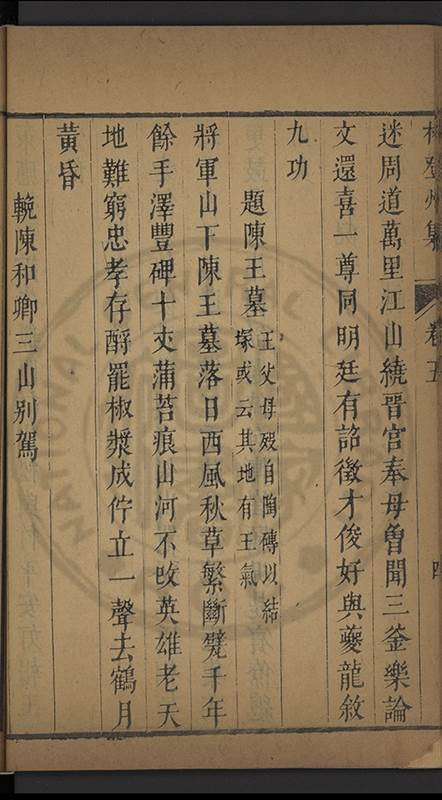 林登州集 卷五 四
迷周道萬里江山繞晉宫奉母曾聞三釜樂論
文還喜一尊同明廷有詔徵才俊好與夔龍敘
九功
題陳王墓 王父母殁自陶磚以結
塚或云其地有王氣
將軍山下陳王墓落日西風秋草繁斷甓千年
餘手澤豐碑十丈蒲苔痕山河不改英雄老天
地難窮忠孝存酹罷椒漿成佇立一聲去鶴月
黃昏
輓陳和卿三山别駕